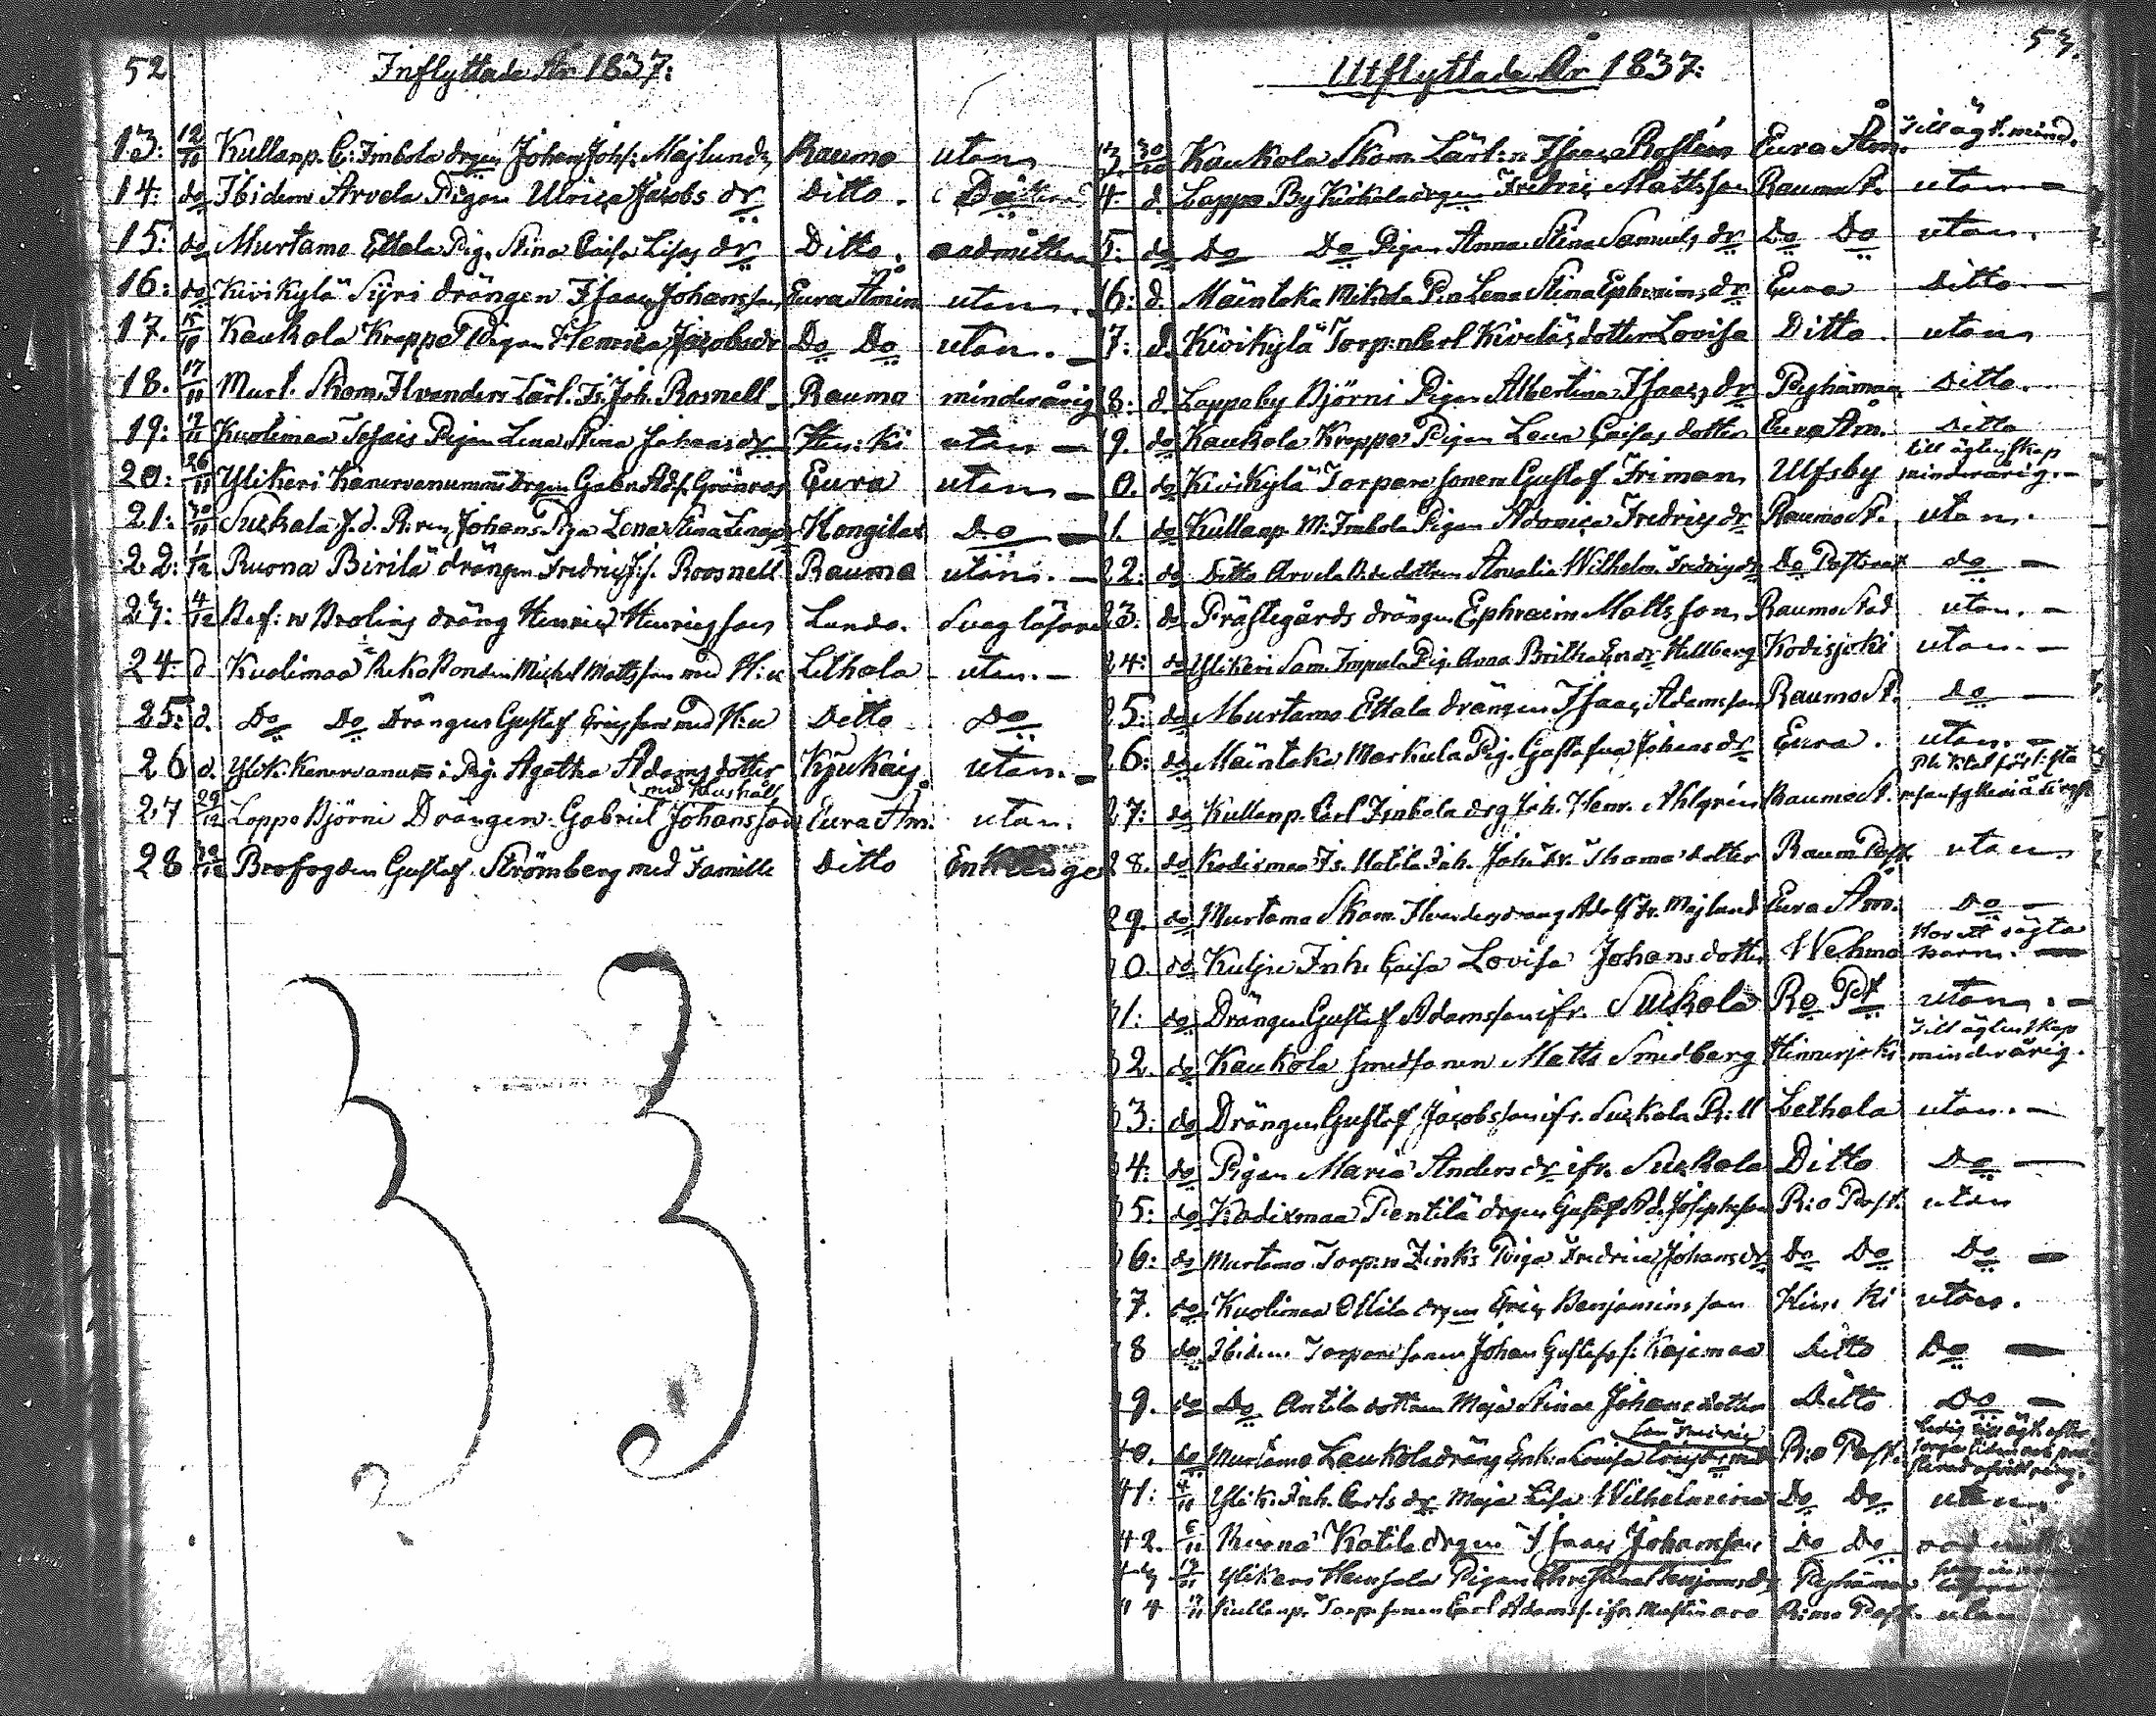 52
Inflyttade År 1837:
13: 12/10 Kullanp. C: Imbola drgen Johan Johs: Majlund Raumo utan
14: do Ibidem Arvela Pigan Ulrica Jacobs dr Ditto.
15: do Murtamo Ettala Pig. Stina Caisa Lisas dr Ditto. oadmitterad
16: do Kivikylä Sÿri drängen Isaac Johansson Eura Åmin utan.
17. 15/10 Kaukola Kreppo Pigan Henrica Jacobsdr Do Do utan. —
18. 17/11 Murt. Skom. Ilvanders Lärl. Is. Joh. Rosnell Raumo minderårig
19: 19/11 Kuolimaa Pigan Lena Stina Johansdr Hin: ki utan —
20: 26/11 Ylikeri Kanervanummi Drgen Gabr. Adf. Grönros Eura utan —
21: 30/11 Suckala Johans Piga Lena Stina Kongilax Do —
22: 1/12 Ruona Birilä drängen Fredric Roosnell Rauma utan. —
23: 4/12 Brolins dräng Henric Henricsson Lundo. Svag läsare
24: d Kuolimaa Bonden Michel Mattsson med H:u Lethala utan. —
25: d. Do Do Drängen Gustaf Ericsson med H:u Ditto Do
26 d. Ylik. Kanervanum: Pig. Agatha Adamsdotter Kjukais utan. —
med Hushåll
27 29/12 Lappo Björni Drängen Gabriel Johansson Eura Åm. utan.
28 30/12 Brofogden Gustaf Strömberg med Famille Ditto
53.
Utflyttade År 1837:
Till ägt. mind.
30/10 Kaukola Skom. Lärl:n Isaac Rostén Eura Åm.
4. d. Lappo By Kirkola drgen Fredric Mattsson Raumo St. utan —
5: do Do Do Pigan Anna Stina Samuels dr Do Do utan.
16: d. Mäntaka Mikola Pin Lena Stina Ephraims dr Eura ditto —
17: d. Kivikylä Torp:n Carl Kiveläs dotter Lovisa Ditto utan
8: d. Lappoby Björni Pigan Albertina Isaacs dr Pyhämaa ditto.
9. do Kaukola Kreppo Pigan Lena Caisas dotter Eura Åm. ditto
till äktenskap
0. do Kivikylä Torpare sonen Gustaf Friman Ulfsby minderårig. —
1. do Kullanp. M: Imbola Pigan Fredrics dr Raumo St. utan.
22: do Ditto Arvela dottren Amalia Wilhelm. Fredricsdr Do do —
23. do Prästegårds drängen Ephraim Mattsson Raumo Stad utan. —
24: do Ylikeri Sam. Impola Pig. Anna Britha Hellberg Kodisjoki utan. —
25: do Murtamo Ettala drängen Isaac Adamsson Raumo St. do —
26: do Mäntaka Markula Pig. Gustafva Johans dr Eura. utan. —
27: do Kullanp. Carl Imbola drg Joh. Henr. Ahlgrén Raumo St.
28. do Kodixmaa Is. Matila Inh. Thomas dotter Raum Post utan
29. do Murtamo Skom. Ilvanders dräng Adolf Fr. Majland Eura Åm. Do —
Har ett oägta
0. do Kulju Inh. Caisa Lovisa Johans dotter Wehmo barn. —
1: do Drängen Gustaf Adamsson ifr. Suckola Ro Pst utan. —
Till äktenskap
2. do Kaukola smedsonen Matts Smedberg Hinnerjoki minderårig.
3: do Drängen Gustaf Jacobsson ifr. Suckola R:ll Lethala utan. —
4: do Pigan Maria Anders dr ifr. Suckola Ditto Do —
5: do Kodixmaa Pentilä drgen Gustaf Ad. Josephsson R:o Post. utan
6: do Murtamo Torp:n Zinks Piga Fredrica Johansdr Do Do Do —
7. do Kuolimaa Ollila drgen Eric Benjaminsson Hin: ki utan.
8 do Ibidem Torpare sonen Johan Gustafss: Kajamaa ditto Do —
9. do Do Antila dottren Maja Stina Johans dotter Ditto Do —
40. do Murtamo Laukola dräng Enk:n Lovisa med R:o Post.
41: 4/11 Ylik. Inh. Carls dr Maja Lisa Wilhelmina Do Do utan
42. 6/11 Ruona Katila drgen Isaac Johansson Do Do
13/11 Ylikeri Heinsala Pigan Christina Benjamsdr Pyhämaa
4 Kullanp. Torp. sonen Carl Adamss: ifr. R:mo Post. utan